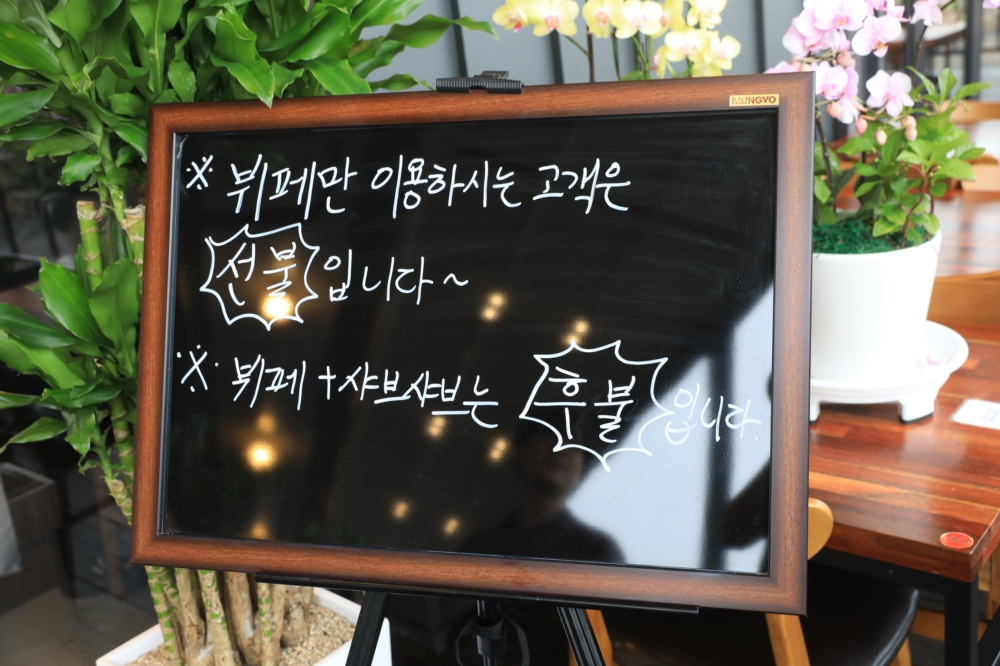 MUNGYO
※ 뷔페만 이용하시는 고객은
선불 입니다~
※ 뷔페+샤브샤브는 후불 입니다.